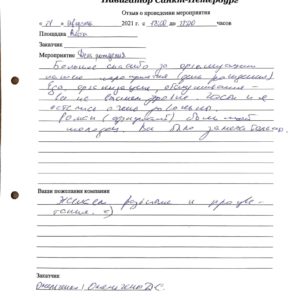 Навигатор Санкт-Петербург
Отзыв о проведении мероприятия
« 21 » августа 2021 г. с 13:00 до 17:00 часов
Площадка
Заказчик
Мероприятие День рождения
Большое спасибо за организацию
нашего мероприятия (дня рождения)
Все,
на высшем уровне. Гости и я
остались очень довольны.
Роман () был
молодец. Все было замечательно.
Ваши пожелания компании
Желаем развития и процве-
тания. :)
Заказчик